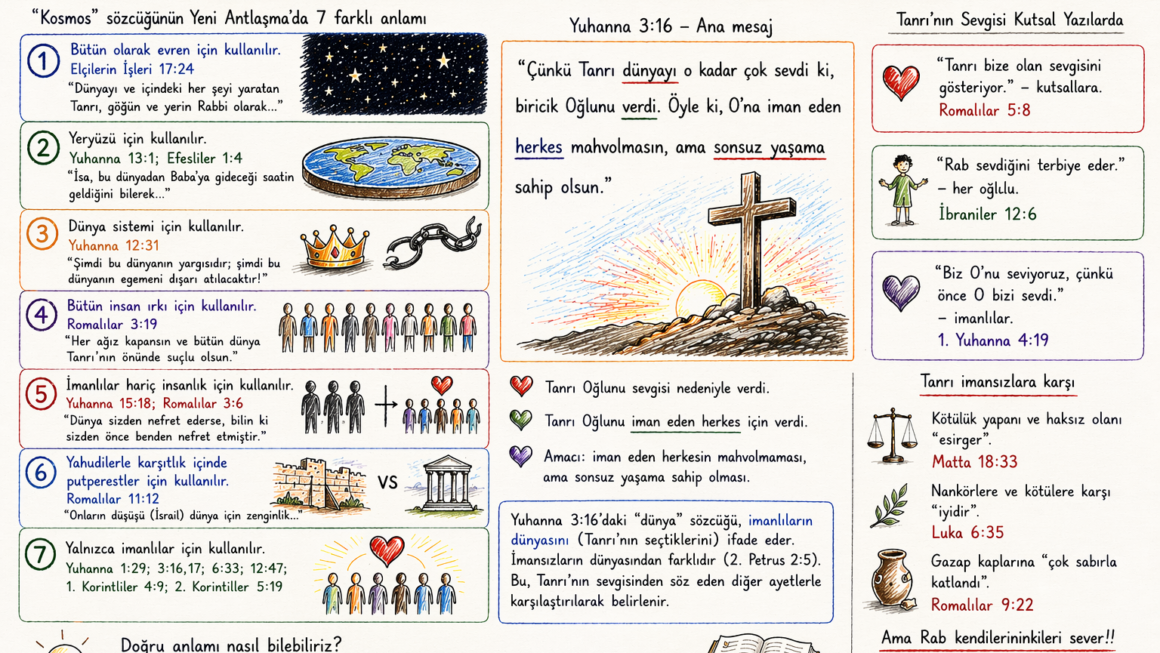 “Kosmos” sözcüğünün Yeni Antlaşma’da 7 farklı anlamı
1
Bütün olarak evren için kullanılır.
Elçilerin İşleri 17:24
“Dünyayı ve içindeki her şeyi yaratan
Tanrı, göğün ve yerin Rabbi olarak...”
2
Yeryüzü için kullanılır.
Yuhanna 13:1; Efesliler 1:4
“İsa, bu dünyadan Baba’ya gideceği saatin
geldiğini bilerek...”
3
Dünya sistemi için kullanılır.
Yuhanna 12:31
“Şimdi bu dünyanın yargısıdır; şimdi bu
dünyanın egemeni dışarı atılacaktır!”
4
Bütün insan ırkı için kullanılır.
Romalılar 3:19
“Her ağız kapansın ve bütün dünya
Tanrı’nın önünde suçlu olsun.”
5
İmanlılar hariç insanlık için kullanılır.
Yuhanna 15:18; Romalılar 3:6
“Dünya sizden nefret ederse, bilin ki
sizden önce benden nefret etmiştir.”
6
Yahudilerle karşıtlık içinde
putperestler için kullanılır.
Romalılar 11:12
“Onların düşüşü (İsrail) dünya için zenginlik...”
VS
7
Yalnızca imanlılar için kullanılır.
Yuhanna 1:29; 3:16,17; 6:33; 12:47;
1. Korintliler 4:9; 2. Korintiller 5:19
Doğru anlamı nasıl bilebiliriz?
Yuhanna 3:16 – Ana mesaj
“Çünkü Tanrı dünyayı o kadar çok sevdi ki,
biricik Oğlunu verdi. Öyle ki, O’na iman eden
herkes mahvolmasın, ama sonsuz yaşama
sahip olsun.”
Tanrı Oğlunu sevgisi nedeniyle verdi.
Tanrı Oğlunu iman eden herkes için verdi.
Amacı: iman eden herkesin mahvolmaması,
ama sonsuz yaşama sahip olması.
Yuhanna 3:16’daki “dünya” sözcüğü, imanlıların
dünyasını (Tanrı’nın seçtiklerini) ifade eder.
İmansızların dünyasından farklıdır (2. Petrus 2:5).
Bu, Tanrı’nın sevgisinden söz eden diğer ayetlerle
karşılaştırılarak belirlenir.
Tanrı’nın Sevgisi Kutsal Yazılarda
“Tanrı bize olan sevgisini
gösteriyor.” – kutsallara.
Romalılar 5:8
“Rab sevdiğini terbiye eder.”
– her oğlılu.
İbraniler 12:6
“Biz O’nu seviyoruz, çünkü
önce O bizi sevdi.”
– imanlılar.
1. Yuhanna 4:19
Tanrı imansızlara karşı
Kötülük yapanı ve haksız olanı
“esirger”.
Matta 18:33
Nankörlere ve kötülere karşı
“iyidir”.
Luka 6:35
Gazap kaplarına “çok sabırla
katlandı”.
Romalılar 9:22
Ama Rab kendilerininkileri sever!!